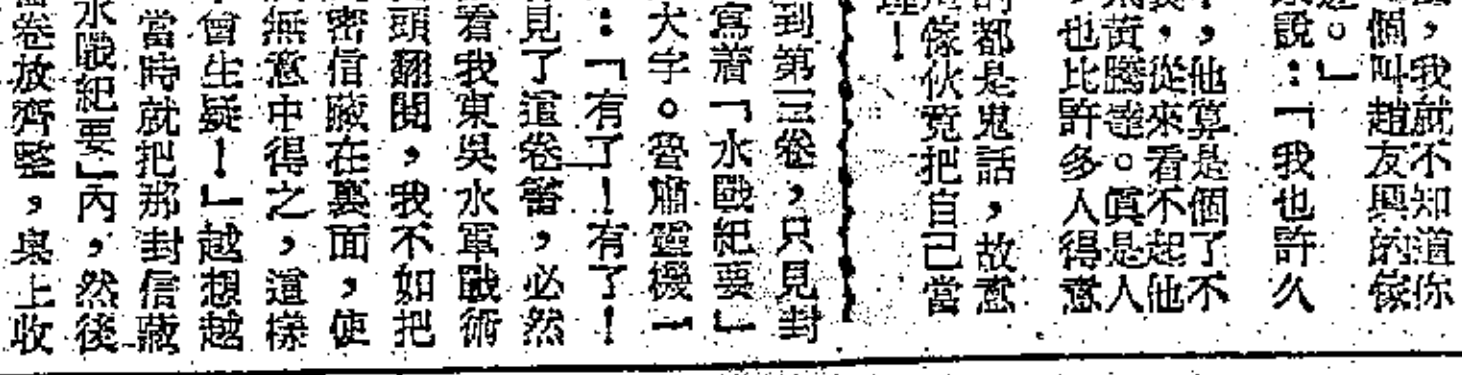 ，我就不知道你
個叫趙友興的傢
。」
說：「我也許久
，他算是個了不
我，從來看不起他
黃騰達。眞是人
也比許多人得意
的都是鬼話，故意
傢伙竟把自己當
理！
到第三卷，只見封
寫着「水戰紀要」
大字。魯肅靈機一
：「有了！有了！
見了這卷書，必然
看我東吳水軍戰術
頭翻閱，我不如把
密信藏在裏面，使
無意中得之，這樣
會生疑！」越想越
當時就把那封信藏
水戰紀要」內，然後
卷放齊整，桌上收